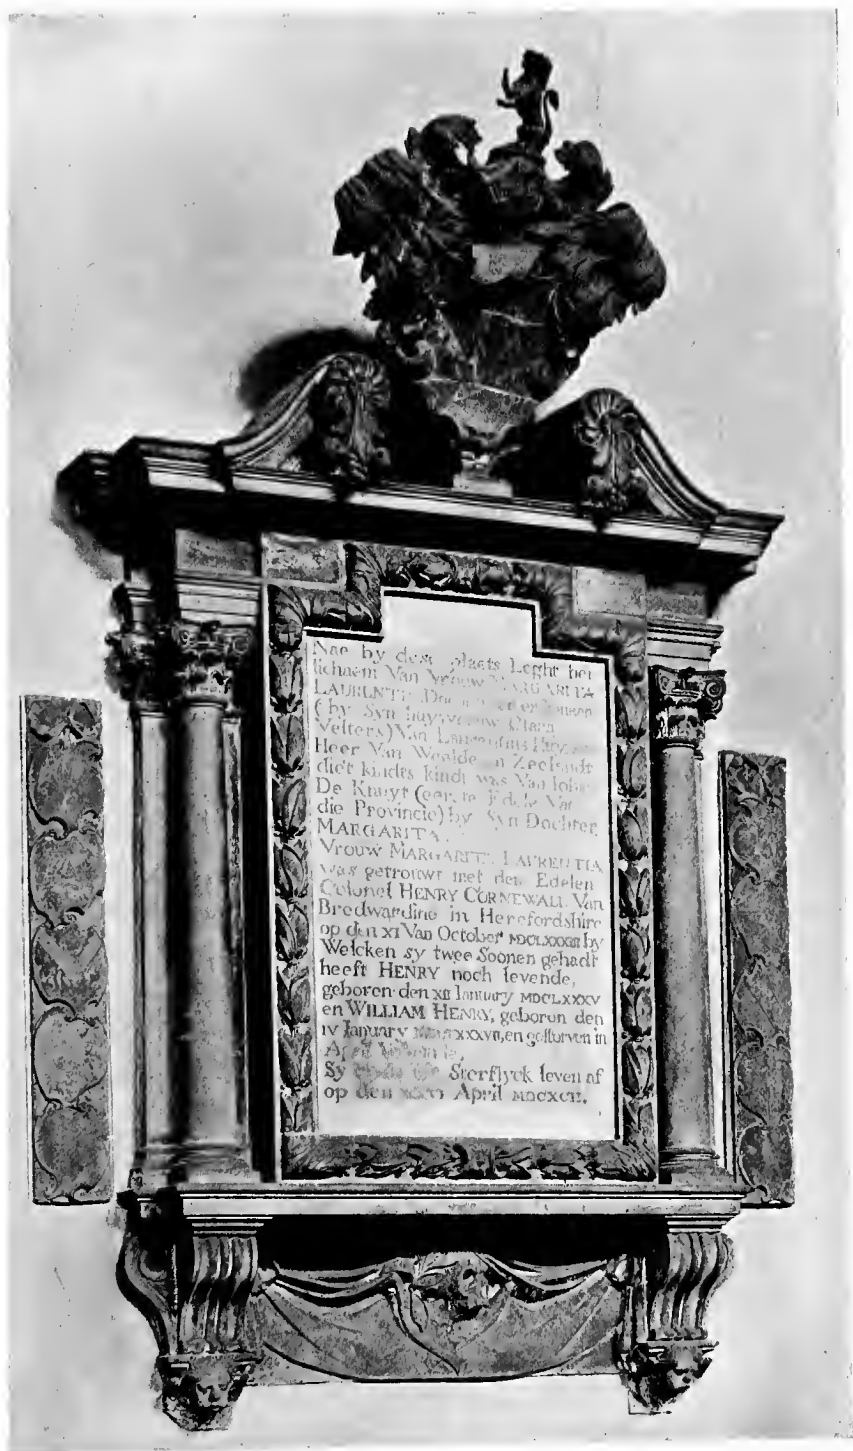 Nae by dese plaets Leght het
lichaem Van Vrouw MARGARITA
LAURENTIA
(by Syn huysvrouw Clara
Velters) Van Laurentius
Heer Van in Zeelandt
die't kindts kindt was Van Johan
De Knuyt (eerste Edele Van
die Provincie) by Syn Dochter
MARGARITA.
Vrouw MARGARITA LAURENTIA
was getrouwt met den Edelen
Colonel HENRY CORNEWALL Van
Bredwardine in Herefordshire
op den XI Van October MDCLXXXIII by
Welcken sy twee Soonen gehadt
heeft HENRY noch levende,
geboren den XII January MDCLXXXV
en WILLIAM HENRY, geboren den
IV January en gesturven in
April
Sy Sterflyck leven af
op den April MDCXCII.